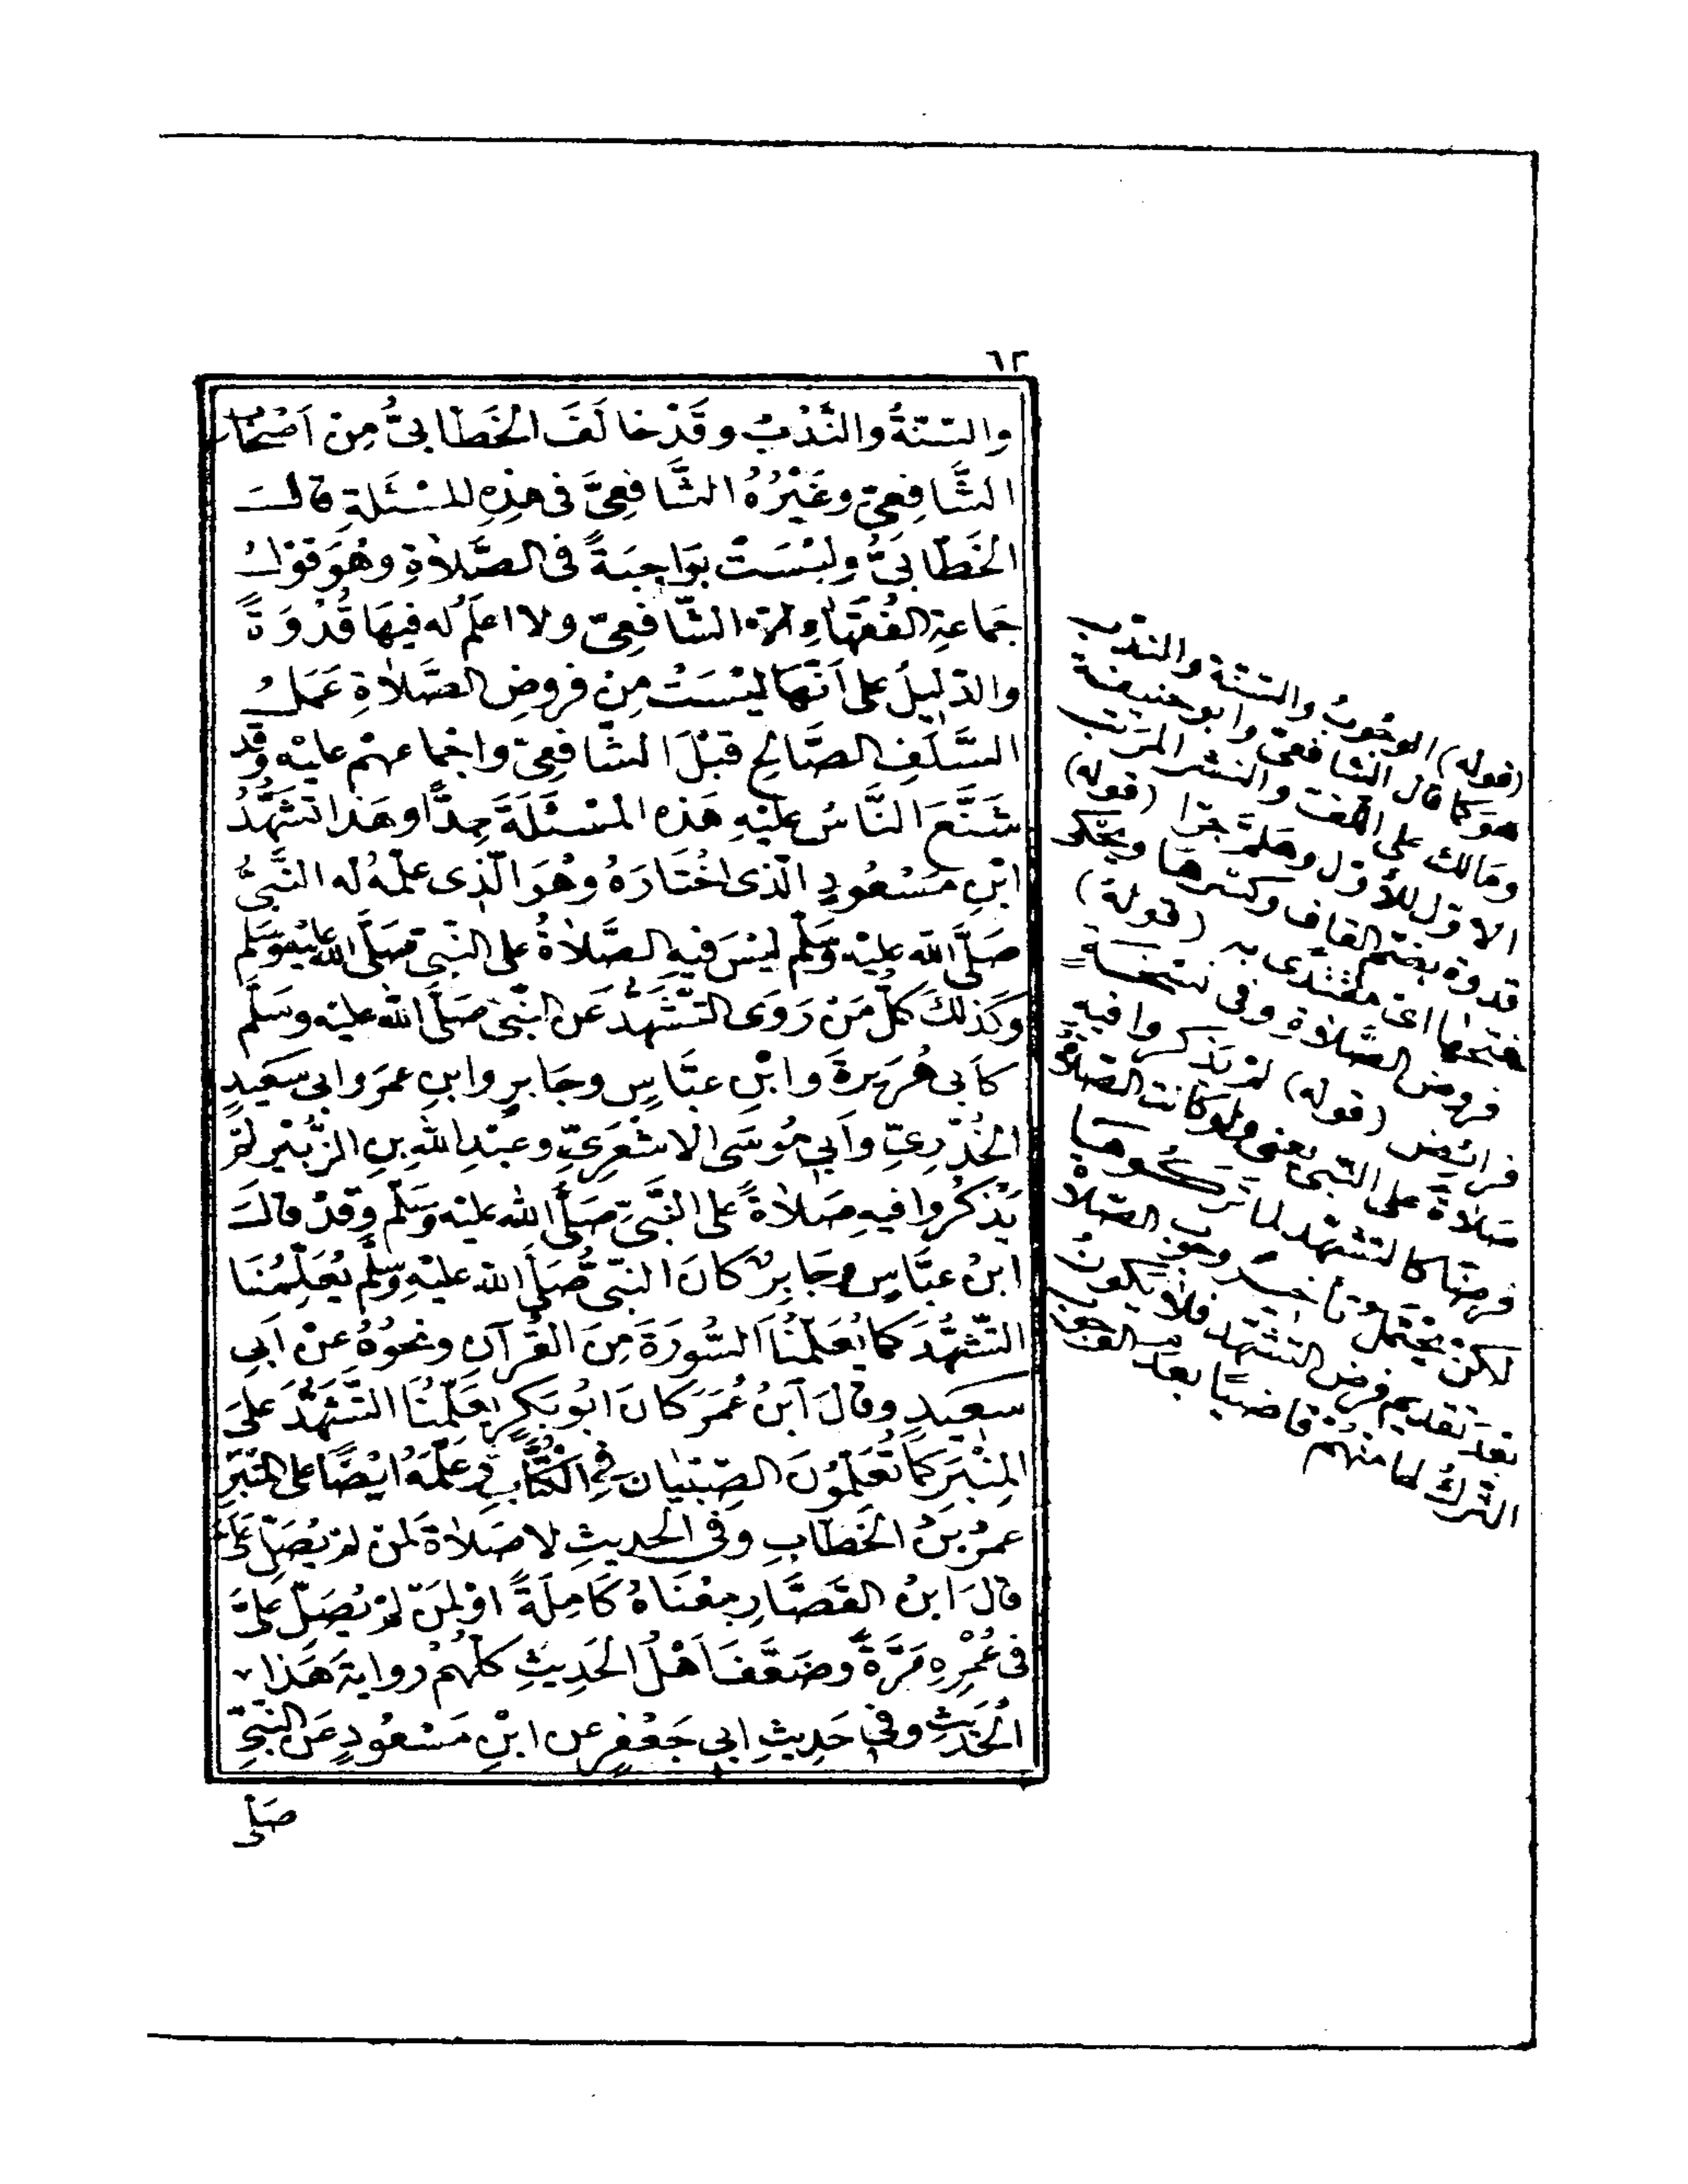 ٦٢
والسّنّةُ والنَّدْبُ وقَدْ خالَفَ الخَطّابىُّ مِنْ اَصْحَابِ
الشَّافِعىّ وغَيْرُهُ الشَّافِعِىَّ فى هذِهِ المسْئَلَةِ قالَ
الخَطّابىُّ وليْسَتْ بوَاجِبَةً فى الصَّلاةِ وهُوَ قوْلُ
جَماعةِ الفُقهَاءِ إلّا الشّافعِىّ ولا اعلَمُ له فيهَا قُدْوَةً
والدّليلُ على اَنّها ليْسَتْ مِنْ فروضِ الصَّلاةِ عَمَلُ
السَّلَفِ الصَّالِحِ قبْلَ الشّافعِىّ واجْماعهمْ عليْه وقد
شَنَّعَ النَّاسُ عليْهِ هَذِه المسْئَلَةَ جِدًّا وهَذا تشَهُّدُ
ابْنِ مَسْعُودٍ الّذى اخْتَارَهُ وهُوَ الّذى علّمهُ له النَّبىُّ
صَلَّى الله عليْه وسَلّم ليْسَ فيهِ الصَّلاةُ على النّبىّ صَلَّى الله عليْه وَسَلم
وَكَذلكَ كلّ مَنْ رَوَى التّشَهُّدَ عَنِ النّبىّ صَلّى الله عليْه وسَلّم
كاَبى هُرَيرةَ وابْنِ عبَّاسٍ وجَابرٍ وابنِ عمَرَ وابى سَعيدٍ
الخُدْرِىّ واَبى مُوسَى الاشْعَرِىّ وعبْدِ اللهِ بنِ الزّبَيْرِ لمْ
يَذْكُرُوا فيهِ صَلاةً على النَّبىّ صَلَّى الله عليْه وسَلّم وقَدْ قالَ
ابنُ عبَّاسٍ وجَابرٌ كانَ النّبىّ صَلَّى الله عليْهِ وسَلّم يُعَلّمُنَا
التّشهُّدَ كما يُعَلّمُنَا السُّورَةَ مِنَ القُرآنِ ونحوُهُ عَنْ اَبى
سَعيدٍ وقالَ ابنُ عُمَرَ كانَ ابُو بَكرٍ يُعَلّمُنَا التَّشَهُّدَ عَلَى
المِنْبَرِ كَما تُعَلّمُونَ الصّبْيَانَ فى الكُتَّابِ وعَلّمَهُ ايْضًا على المنبَرِ
عمرُ بنُ الخَطّابِ وفى الحديثِ لا صَلاةَ لمَنْ لمْ يُصَلّ عَلَىَّ
قالَ ابنُ القصَّارِ معْنَاهُ كَامِلَةً اوْ لمَنْ لمْ يُصَلّ عَلَىَّ
فى عُمْرِهِ مَرَّةً وضَعَّفَ اَهْلُ الحَدِيثِ كلّهُمْ روايةَ هَذا
الحَديثِ وفى حَدِيثِ ابى جَعْفرٍ عن ابْنِ مَسْعُودٍ عَنِ النَّبىّ
صَلّى
(قوله) الوجُوبُ والسّنّة والندْب
هوَ كما قال الشافعىّ وابو حنيفة
ومالك على اللف والنشر المرتب
الاوّل للأوّل وهلمّ جرّا (قوله)
قدوة بضمّ القاف وكسرها ويحكى
فتحها اىْ مقتدى به (قوله)
فروض الصّلاة وفى نسْخة
فرائض (قوله) لمْ يذكروا فيه
صلاةً على النّبى يعنى ولو كانت الصّلاة
فرضا كالتشهّد لما تركوها
لكنْ يحتمل تأخير وجوب الصّلاة
بعدَ تقديم فرض التشهّد فلا يكونُ
الترك لها منهُم قاضيًا بعدم الوجوب